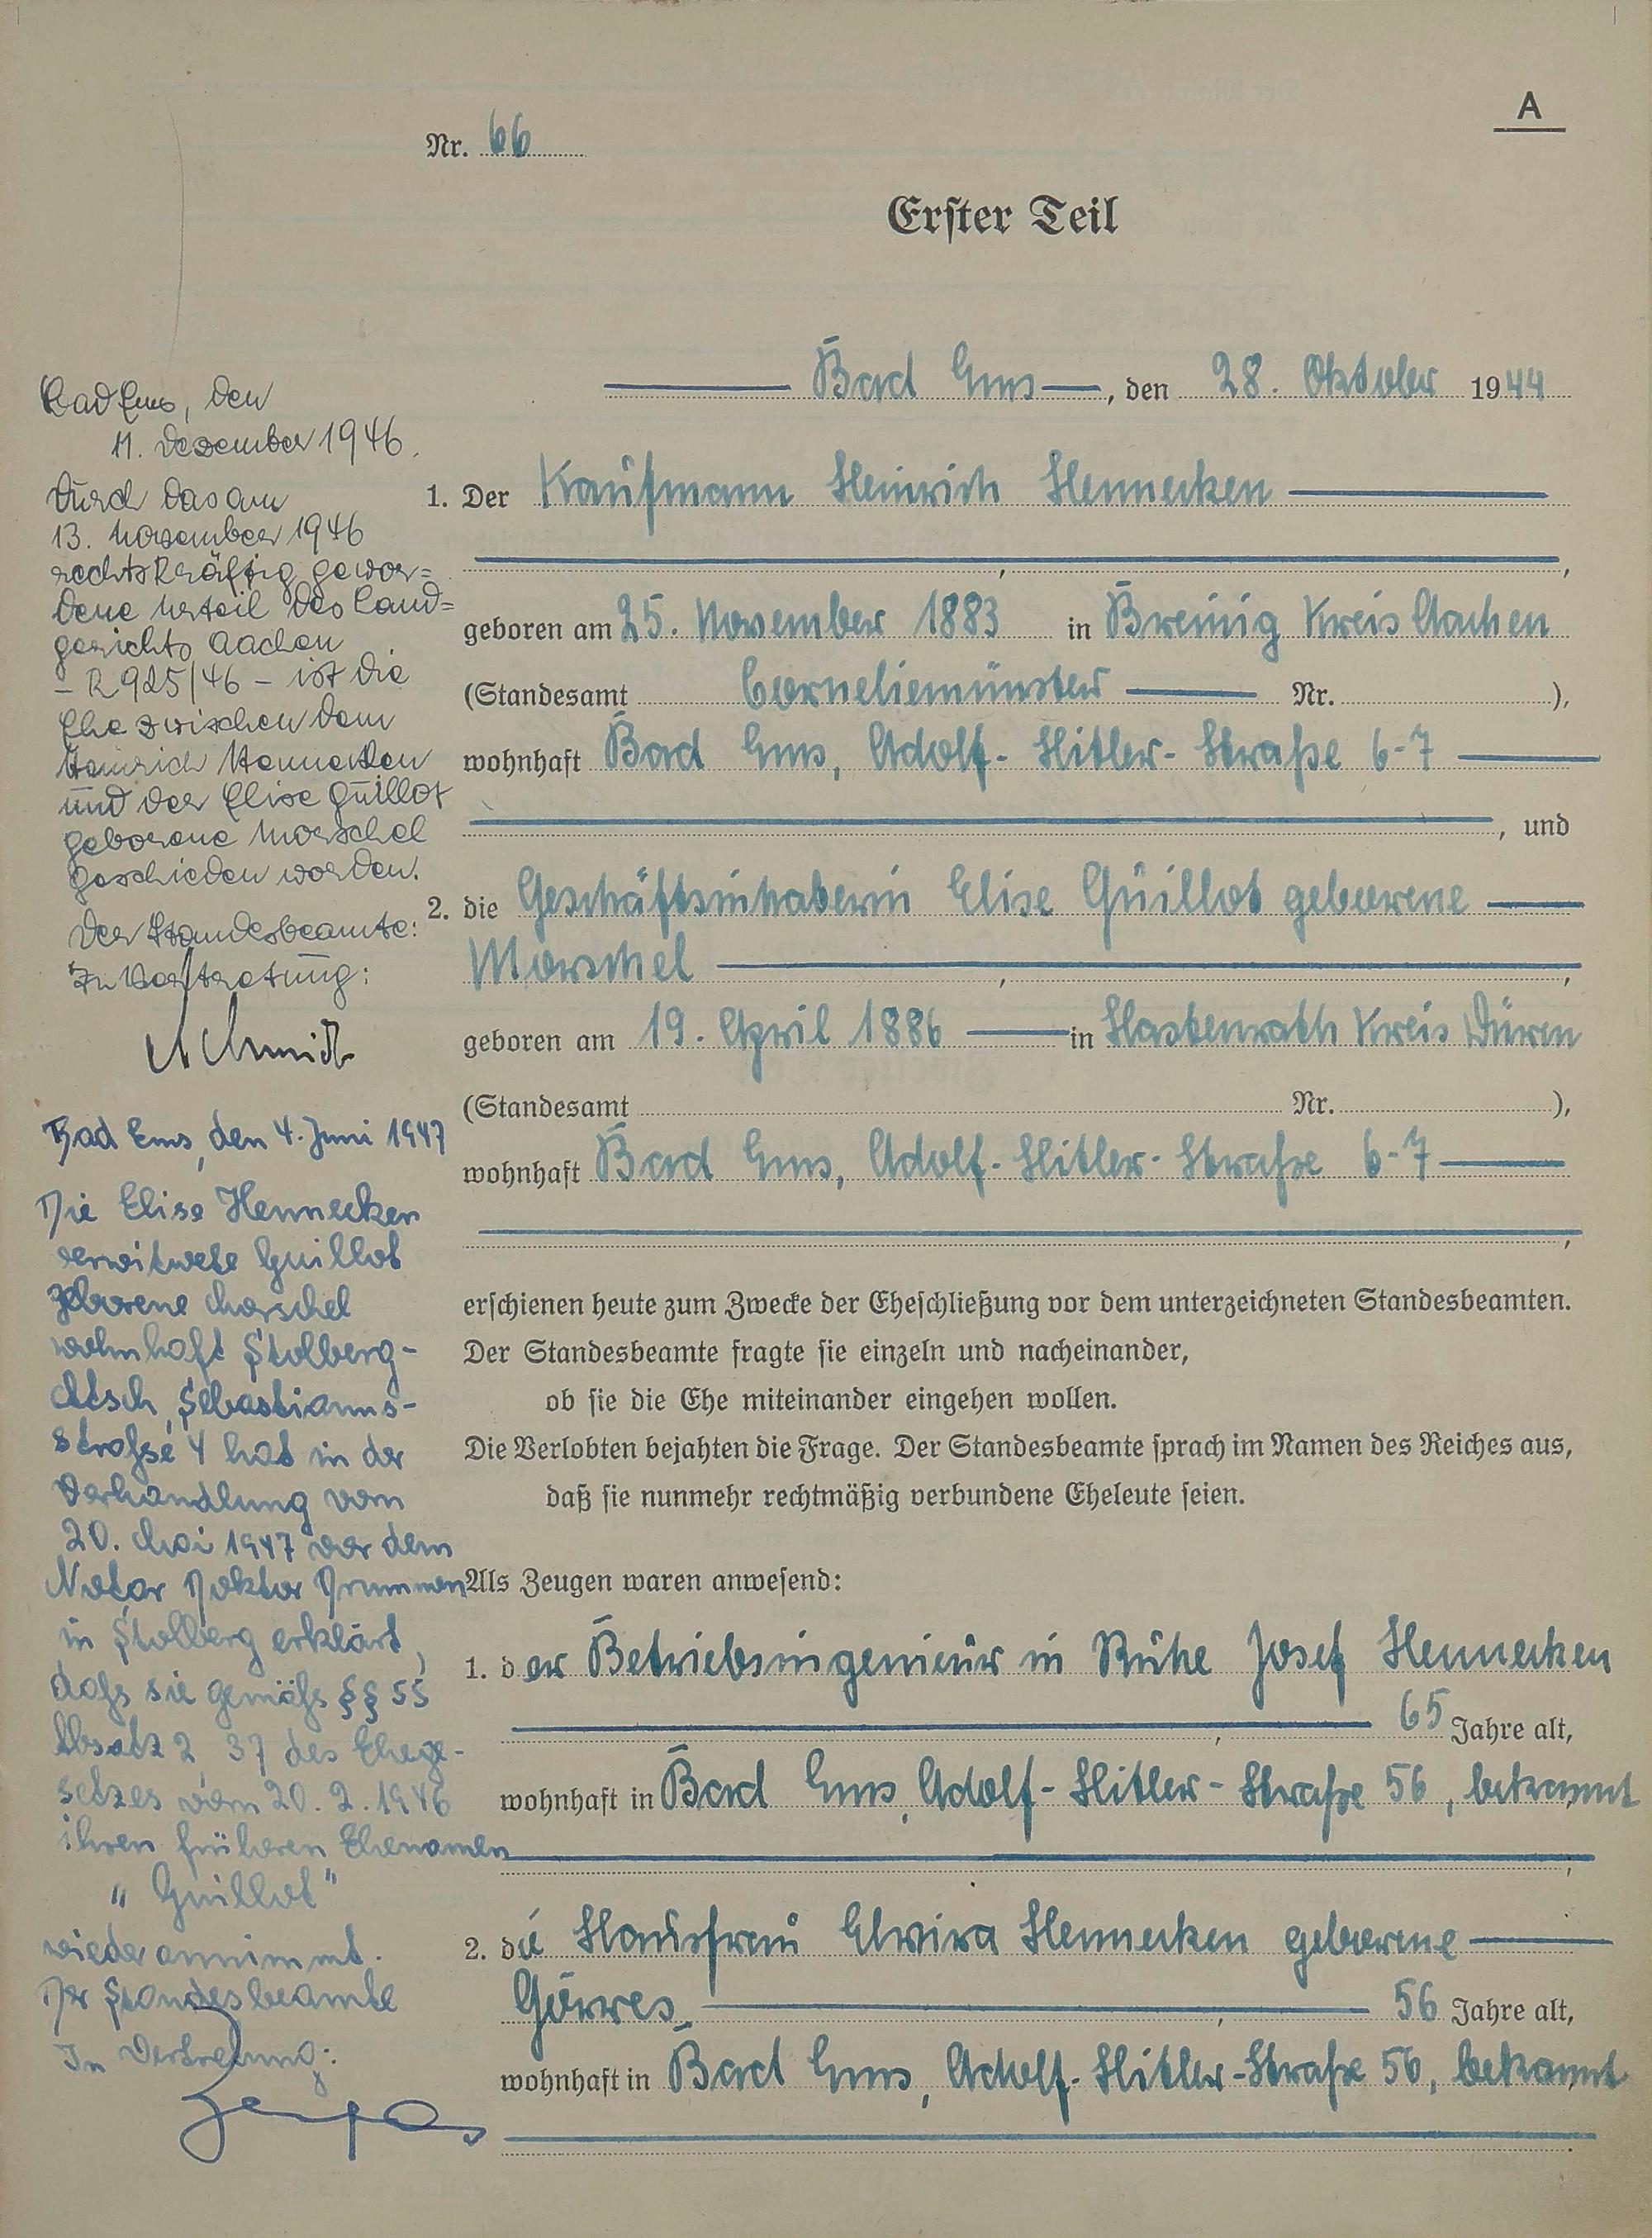 A
Nr. 66
Erster Teil
Bad Ems, den 28. Oktober 1944
1. Der Kaufmann Heinrich Hennecken
,
,
geboren am 25. November 1883 in Breinig Kreis Aachen
(Standesamt Cornelimünster Nr. ),
wohnhaft Bad Ems, Adolf-Hitler-Straße 6-7
, und
2. die Geschäftsinhaberin Elise Guillot geborene
Morschel , ,
geboren am 19. April 1886 in Hastenrath Kreis Düren
(Standesamt Nr. ),
wohnhaft Bad Ems, Adolf-Hitler-Straße 6-7
,
erschienen heute zum Zwecke der Eheschließung vor dem unterzeichneten Standesbeamten.
Der Standesbeamte fragte sie einzeln und nacheinander,
ob sie die Ehe miteinander eingehen wollen.
Die Verlobten bejahten die Frage. Der Standesbeamte sprach im Namen des Reiches aus,
daß sie nunmehr rechtmäßig verbundene Eheleute seien.
Als Zeugen waren anwesend:
1. der Betriebsingenieur in Ruhe Josef Hennecken
, 65 Jahre alt,
wohnhaft in Bad Ems, Adolf-Hitler-Straße 56, bekannt
;
2. die Hausfrau Elvira Hennecken geborene
Görres , 56 Jahre alt,
wohnhaft in Bad Ems, Adolf-Hitler-Straße 56, bekannt
.
Bad Ems, den
11. Dezember 1946.
Durch das am
13. November 1946
rechtskräftig gewor=
dene Urteil des Land=
gerichts Aachen
- R 925/46 - ist die
Ehe zwischen dem
Heinrich Hennecken
und der Elise Guillot
geborene Morschel
geschieden worden.
Der Standesbeamte:
In Vertretung:
Schmidt
Bad Ems, den 4. Juni 1947
Die Elise Hennecken
verwitwete Guillot
geborene Morschel
wohnhaft Stolberg-
Atsch, Sebastianus-
straße 4 hat in der
Verhandlung vom
20. Mai 1947 vor dem
Notar Doktor
in Stolberg erklärt,
daß sie gemäß §§ 55
Absatz 2, 37 des Ehege-
setzes vom 20.2.1946
ihren früheren Ehenamen
"Guillot"
wiederannimmt.
Der Standesbeamte
In Vertretung: